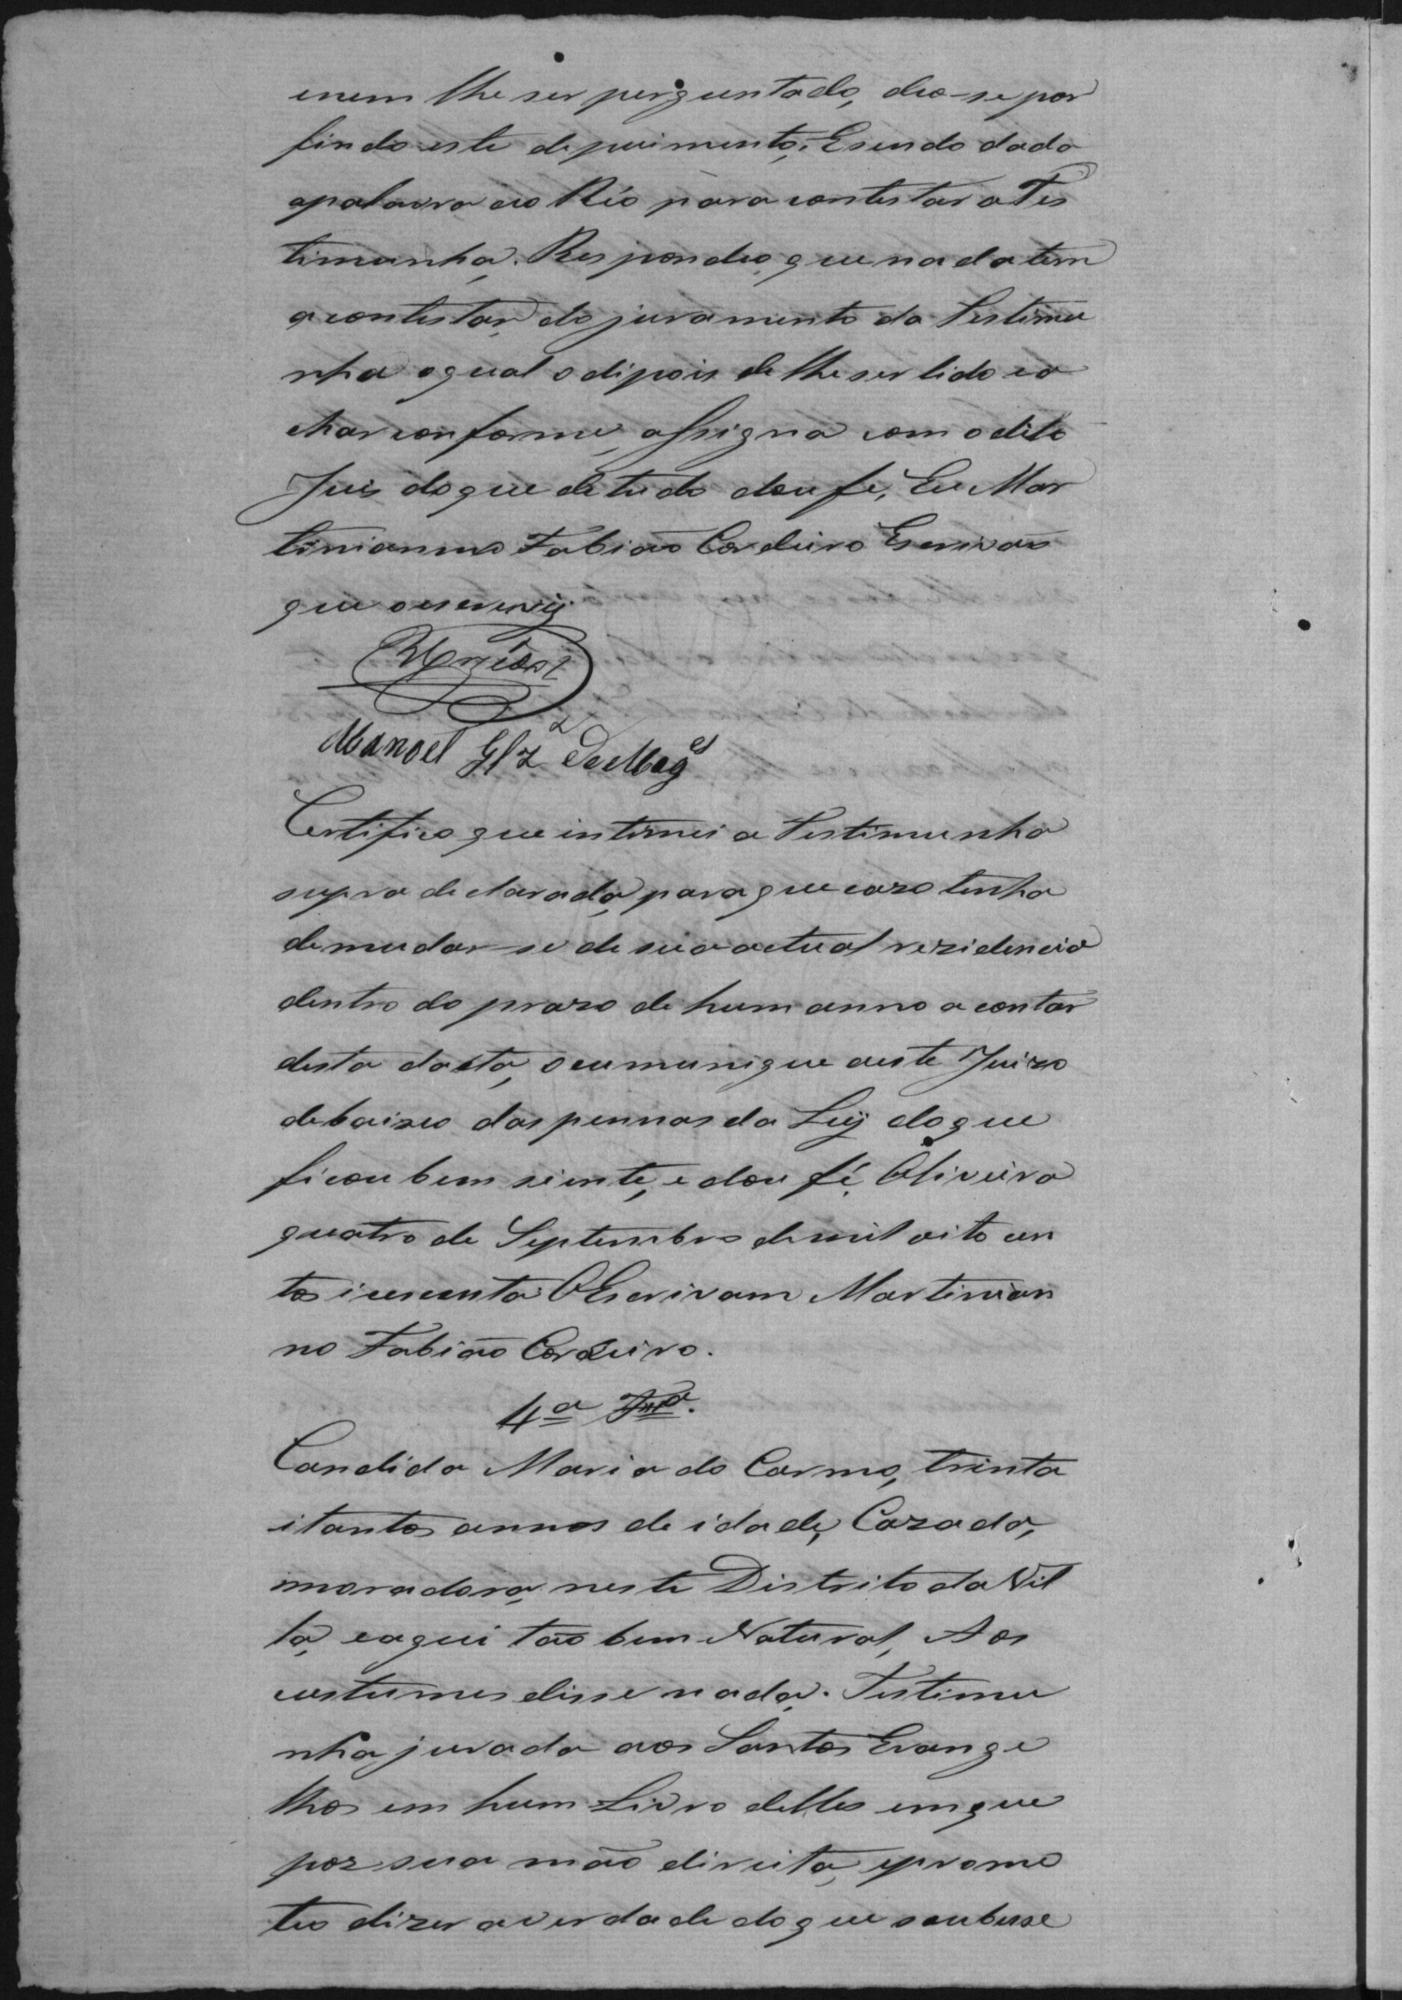 enem lhe ser perguntado, deo-se por
findo este depoimento; E sendo dado
apalavra ao Réo para contestar a Tes
timunha. Respondeo, que nada tem
a contestar do juramento da Testimu
nha o qual o dipois de lhe ser lido eo
char conforme, assigna com o dito
Juis do que de tudo dou fé, Eu Mar
tinianno Fabião Cordeiro Escrivão
que o escrevy
Manoel Glz De Mag.es
Certifico que intimei a Testimunha
supra declarada, para que cazo tenha
demudar-se de sua actual rezidencia
dentro do prazo de hum anno a contar
desta dacta, o cumunique aeste Juizo
debaixo das pennas da Ley do que
ficou bem siente, e dou fé. Oliveira
quatro de Septembro demil oito cen
tos icincoenta O Escrivam Martinian
no Fabião Cordeiro.
4ª Tª.
Candida Maria do Carmo, trinta
itantos annos de idade, Cazada,
moradora, neste Distrito da Vil
la, eaqui tão bem Natural, Aos
custumes disse nada. Testimu
nha jurada aos Santos Evange
lhos em hum Livro delles emque
poz sua mão direita, eprome
teo dizer averdade do que soubese